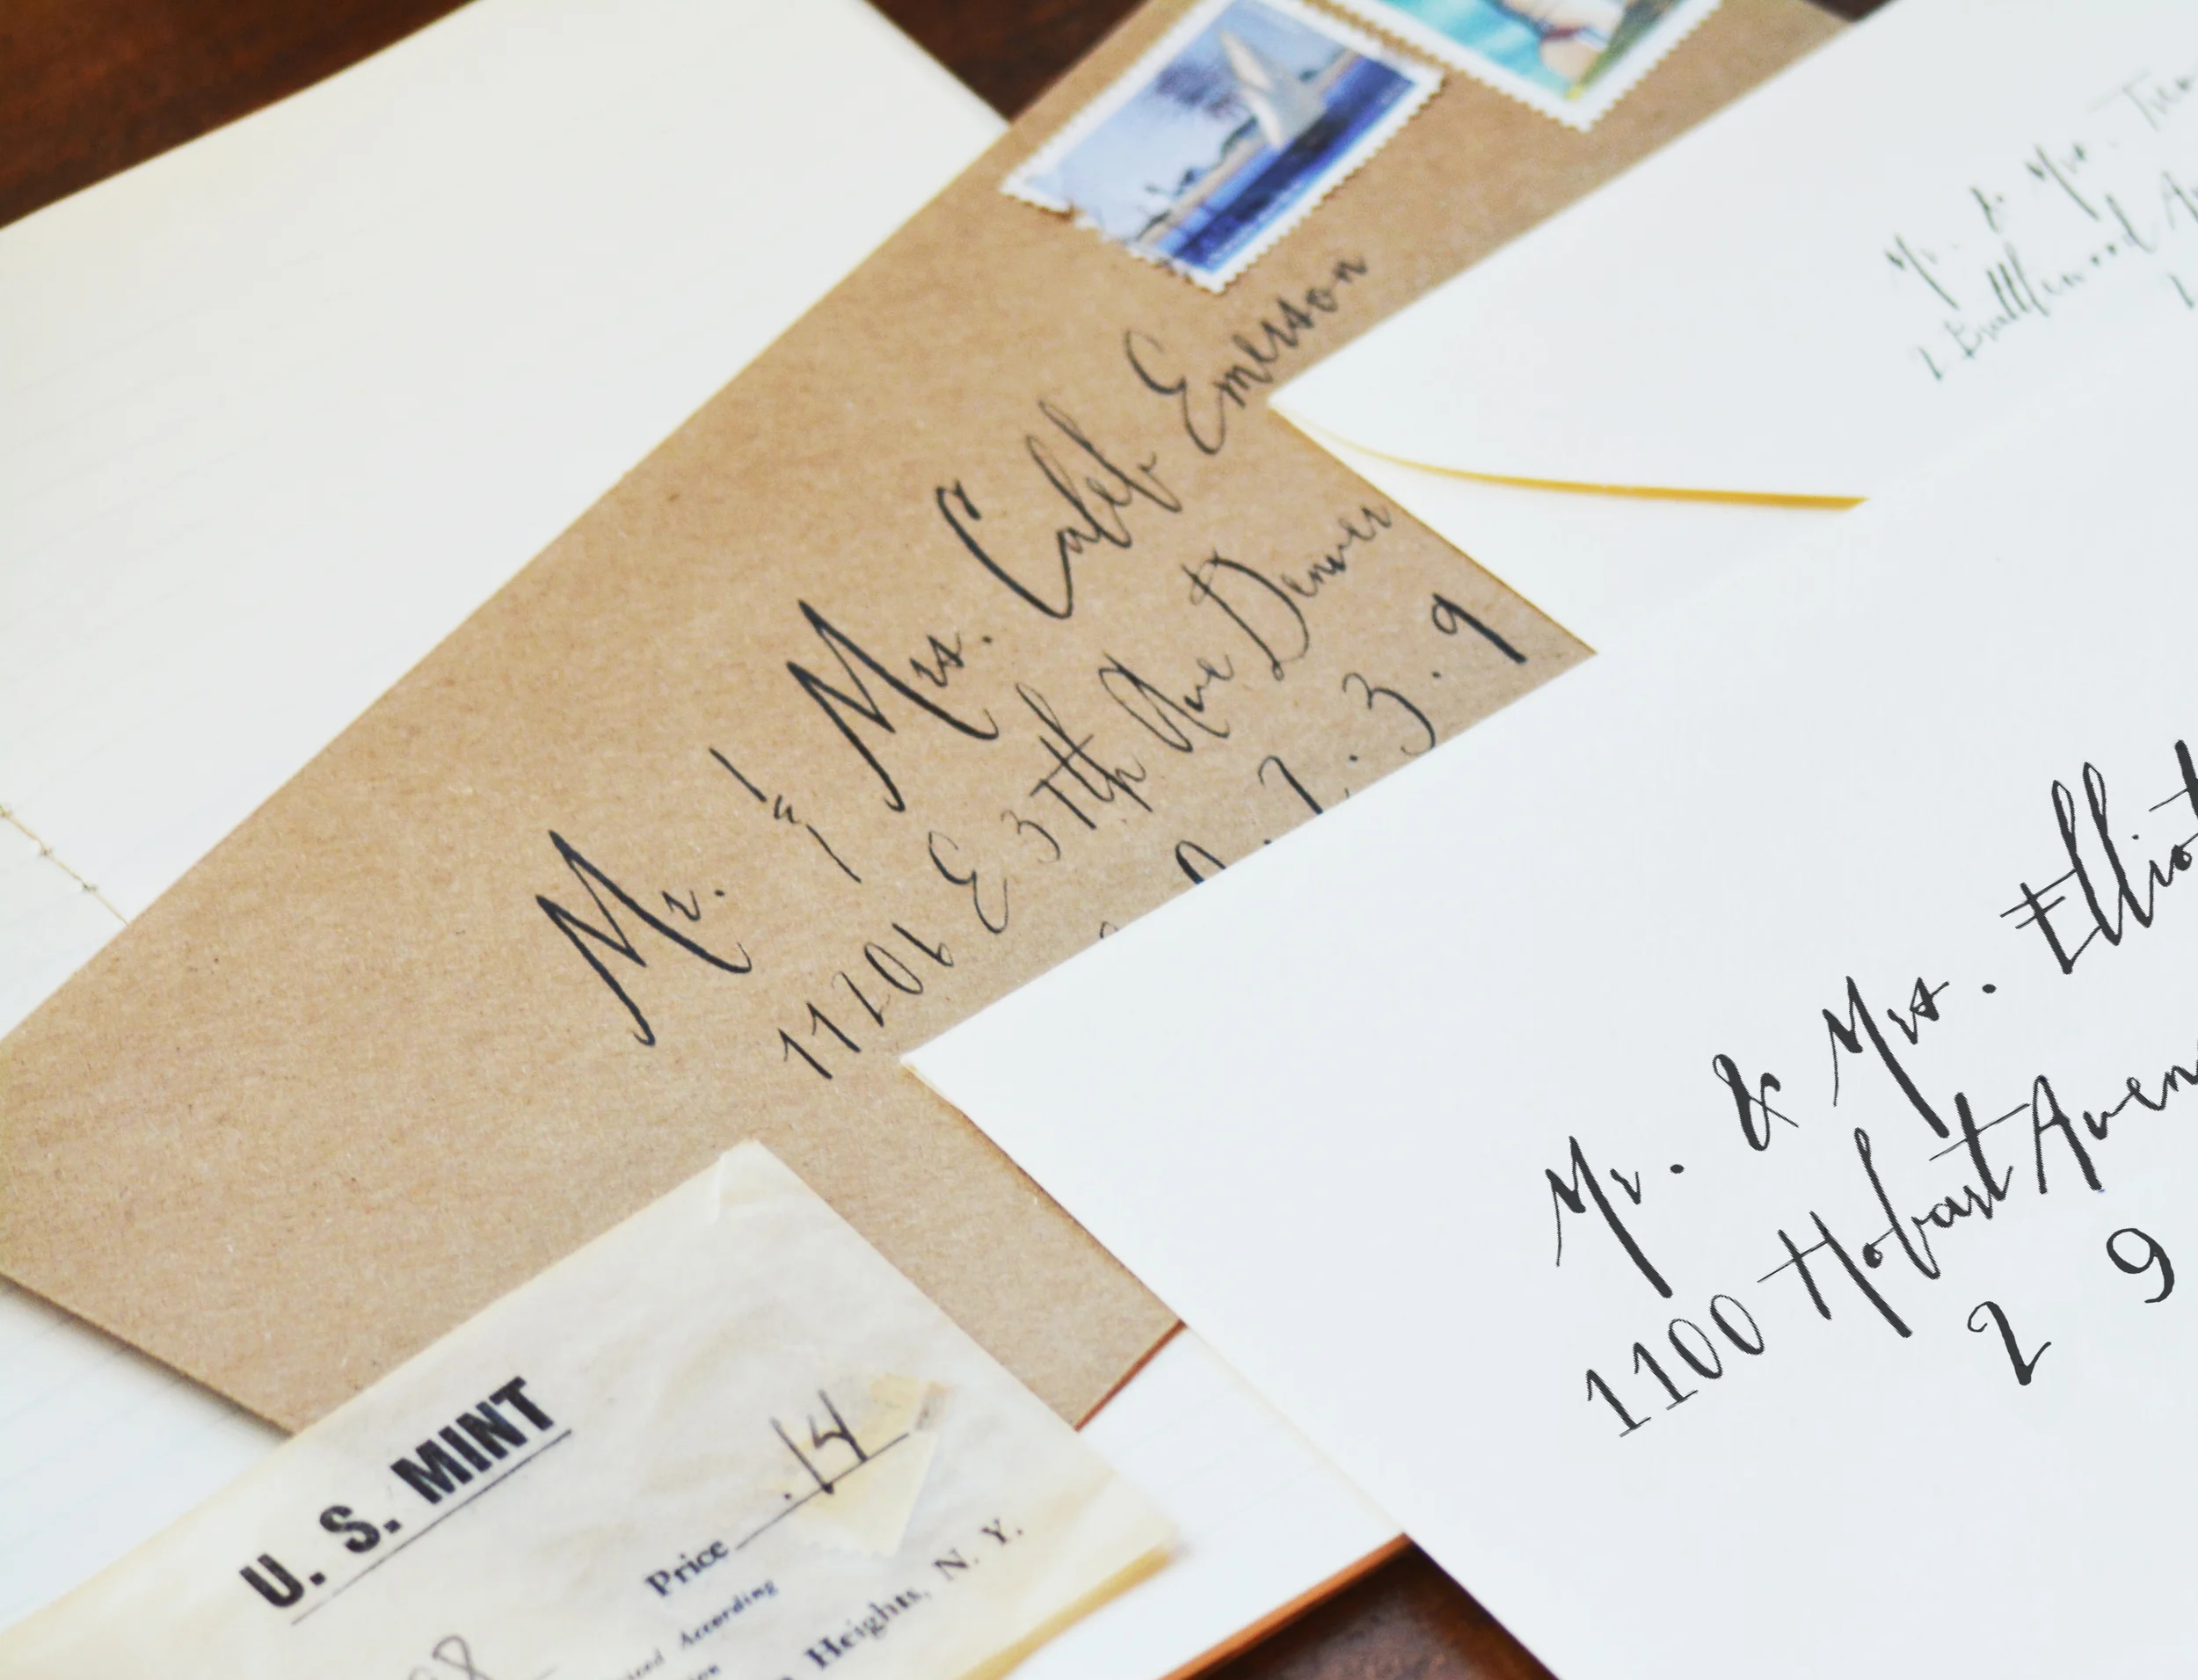 Mr. & Mrs. Caleb Emerson
11206 E 37th Ave Denver
7.3.9
Mr. & Mrs.
Mr. & Mrs. Elliot
1100 Hobart Aven
2 9
U. S. MINT
Price .14
According
Heights, N. Y.